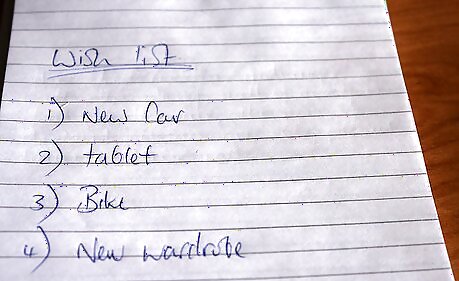 Wish list
1) New Car
2) tablet
3) Bike
4) New wardrobe